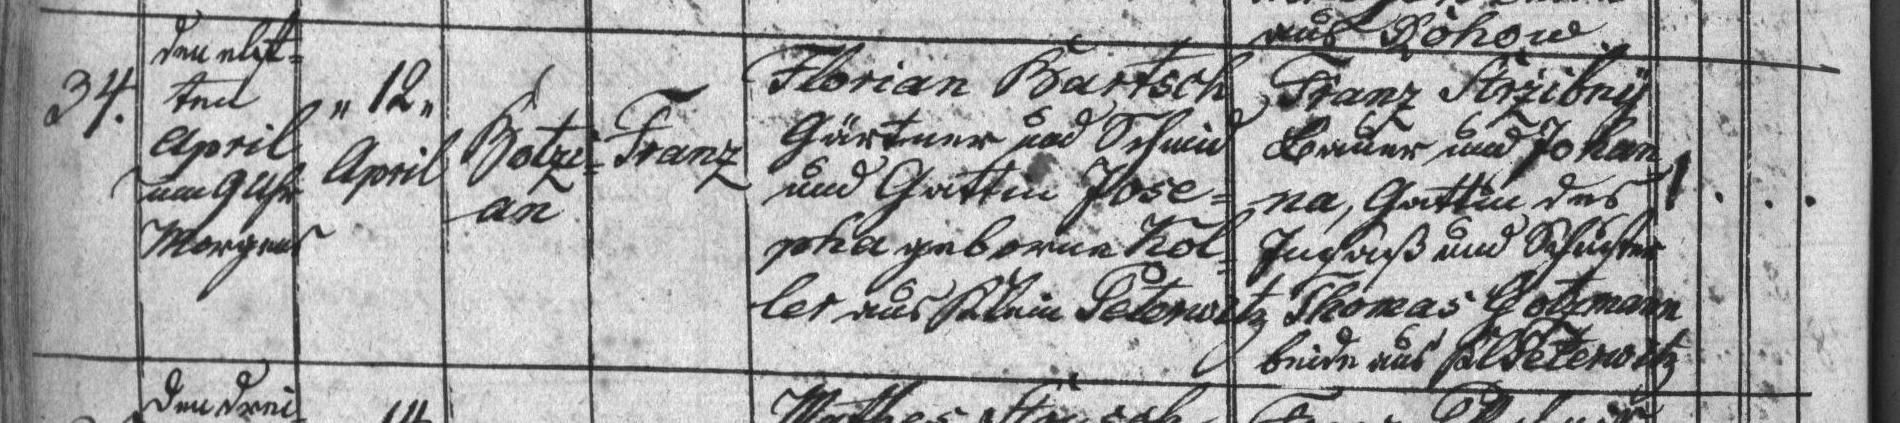 aus Rohow
34.
den elf-
ten
April
um 9 Uhr
Morgens
" 12 "
April
Botzi-
an
Franz
Florian Bartsch
Gärtner und Schmid
und Gattin Jose-
pha geborne Kol-
ler aus Klein Peterwitz
Franz Stržibny
Bauer und Johan
na, Gattin des
und Schuster
Thomas Gotzmann
beide aus Kl Peterwitz
1 . . .
den drei-
14